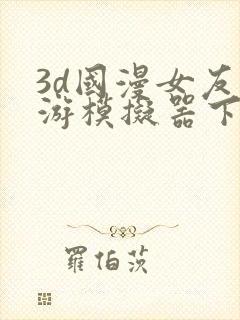 3d國漫女友
游模擬器下
羅伯茨